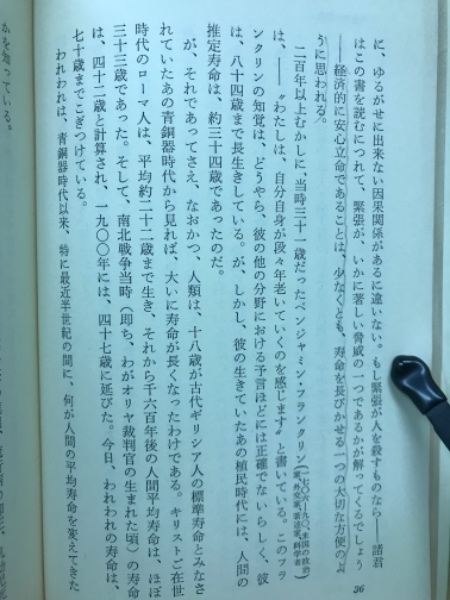 に、ゆるがせに出来ない因果関係があるに違いない。もし緊張が人を殺すものなら――諸君
はこの書を読むにつれて、緊張が、いかに著しい脅威の一つであるかが解ってくるでしょう
――経済的に安心立命であることは、少なくとも、寿命を長びかせる一つの大切な方便のよ
うに思われる。
二百年以上むかしに、当時三十一歳だったベンジャミン・フランクリン(一七〇六―九〇、米国の政治
家、外交家、著述家、科学者)
は、――〝わたしは、自分自身が段々年老いていくのを感じます〟と書いている。このフラ
ンクリンの知覚は、どうやら、彼の他の分野における予言ほどには正確でないらしく、彼
は、八十四歳まで長生きしている。が、しかし、彼の生きていたあの植民時代には、人間の
推定寿命は、約三十四歳であったのだ。
が、それであってさえ、なおかつ、人類は、十八歳が古代ギリシア人の標準寿命とみなさ
れていたあの青銅器時代から見れば、大いに寿命が長くなったわけである。キリストご在世
時代のローマ人は、平均約二十二歳まで生き、それから千六百年後の人間平均寿命は、ほぼ
三十三歳であった。そして、南北戦争当時(即ち、わがオリヤ裁判官の生まれた頃)の寿命
は、四十二歳と計算され、一九〇〇年には、四十七歳に延びた。今日、われわれの寿命は、
七十歳までこぎつけている。
われわれは、青銅器時代以来、特に最近半世紀の間に、何が人間の平均寿命を変えてきた
かを知っている。
36